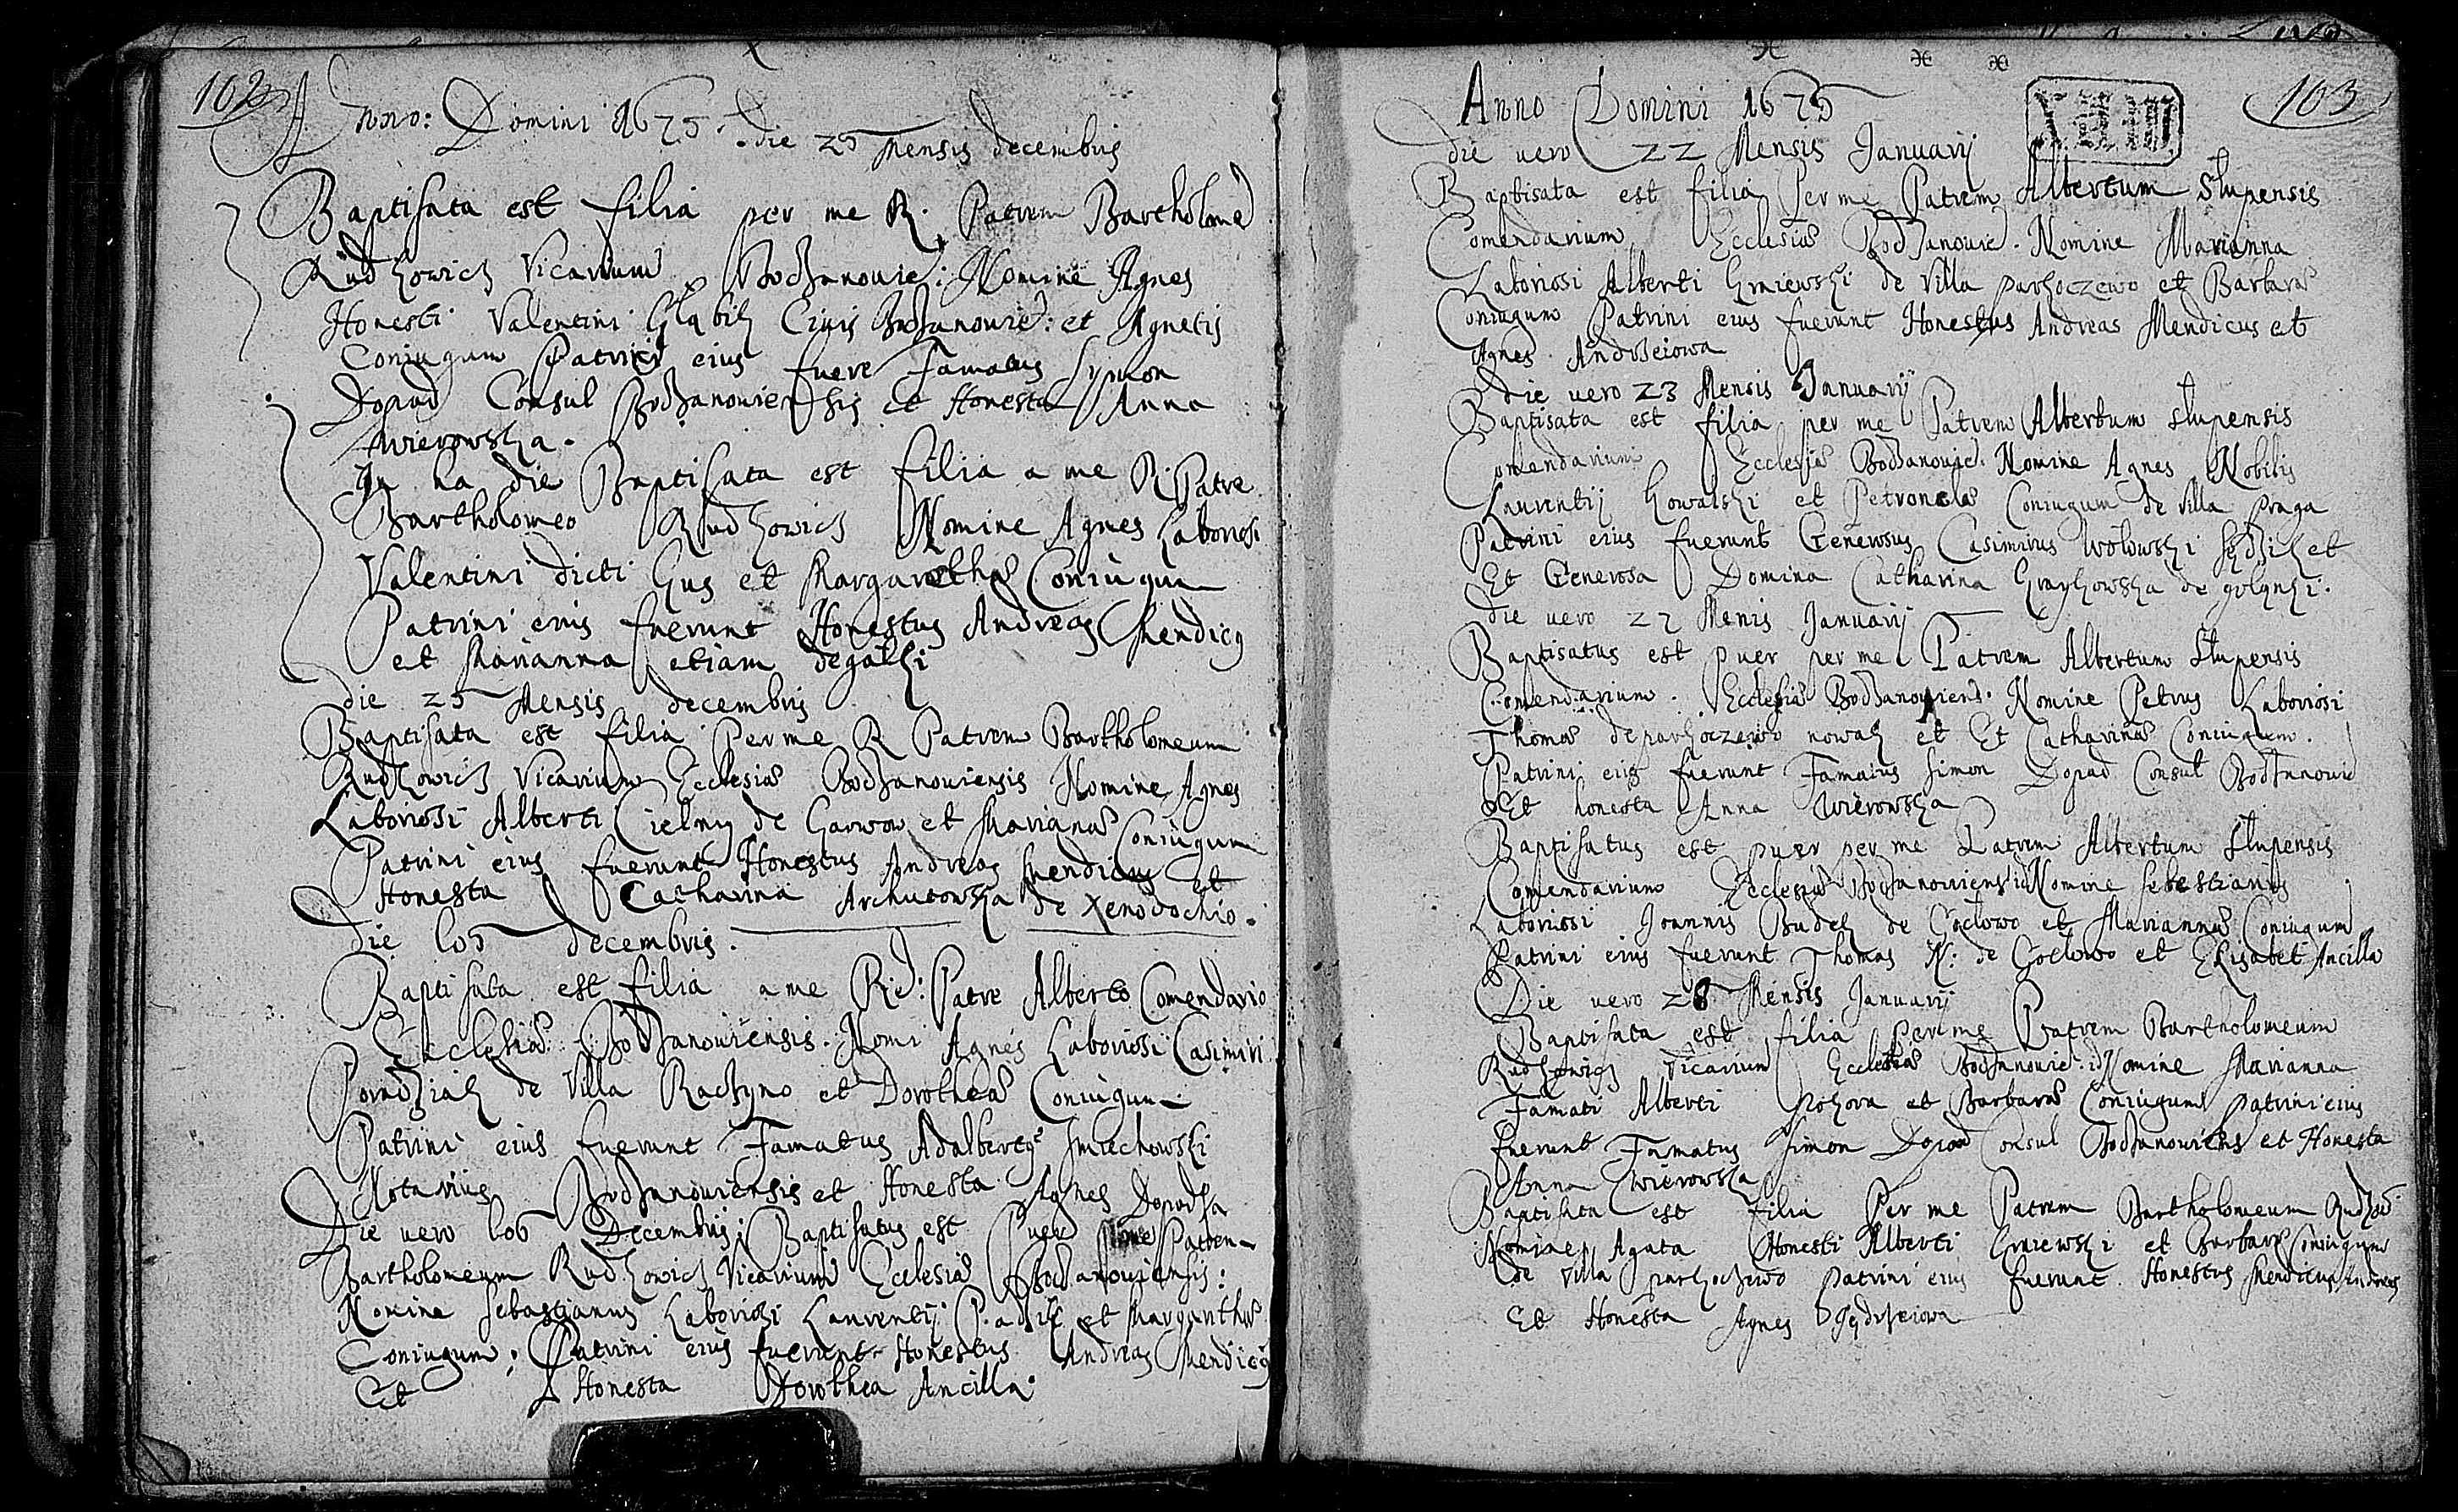 102
Anno: Domini 1675. die 25 Mensis decembris
Baptisata est filia per me R. Patrem Bartholome
Rudkowicz Vicarium Bodzanovie: Nomine Agnes
Honesti Valentini Civis Bodzanovie: et Agnetis
Coniugum Patrini eius fuere Famatus Symon
Dopad Consul Bodzanoviensis et Honesta Anna
Wierowska.
In ha die Baptisata est filia a me R: Patre
Bartholomeo Rudkowicz Nomine Agnes Laboriosi
Valentini dicti Gus et Margarethæ Coniugum
Patrini eius fuerunt Honestus Andreas Mendicus
et Marianna etiam
die 25 Mensis decembris
Baptisata est filia Per me R Patrem Bartholomeum
Rudkowicz Vicarium Ecclesiæ Bodzanoviensis Nomine Agnes
Laboriosi Alberti Cielny de Garwow et Marianæ Coniugum
Patrini eius fuerunt Honestus Andreas Mendicus et
Honesta Catharina Archutowska de Xenodochio.
Die decembris.
Baptisata est filia a me Rd: Patre Alberto Comendario
Ecclesiæ Bodzanoviensis. Nomi Agnes Laboriosi Casimiri
de Villa Raczyno et Dorotheæ Coniugum
Patrini eius fuerunt Famatus Adalbertus Smiechowski
Notarius Bodzanoviensis et Honesta Agnes Dopadka
Die vero Decembris: Baptisatus est Puer Patrem
Bartholomeum Rudkowicz Vicarium Ecclesiæ Bodzanoviensis:
Nomine Sebastianus Laboriosi Laurentij et Margarethæ
Coniugum: Patrini eius fuerunt Honestus Andreas Mendicus
Et Honesta Dorothea Ancilla.
103
Anno Domini 1675
die vero 22 Mensis Januarij
Baptisata est filia Per me Patrem Albertum Slupensis
Comendarium Ecclesiæ Bodzanovie. Nomine Marianna
Laboriosi Alberti Graiewski de Villa parkoczewo et Barbaræ
Coniugum Patrini eius fuerunt Honestus Andreas Mendicus et
Agnes Andrzeiowa
Die vero 23 Mensis Januarij
Baptisata est filia per me Patrem Albertum Slupensis
Comendarium Ecclesiæ Bodzanovie. Nomine Agnes Nobilis
Laurentij Kowalski et Petronelæ Coniugum de villa praga
Patrini eius fuerunt Generosus Casimirus Wolowski et
Et Generosa Domina Catharina de
die vero 27 Menis Januarij
Baptisatus est puer per me Patrem Albertum Slupensis
Comendarium. Ecclesiæ Bodzanoviens. Nomine Petrus Laboriosi
Thomæ de parkoczewo nowak et Et Catharinæ Coniugum.
Patrini eius fuerunt Famatus Simon Dopad Consul Bodzanovie
Et honesta Anna Wierowska
Baptisatus est puer per me Patrem Albertum Slupensis
Comendarium Ecclesiæ Bodzanoviensis Nomine Sebestianus
Laboriosi Joannis Budek de Goclowo et Mariannæ Coniugum
Patrini eius fuerunt Thomas N: de Goclowo et Elisabet Ancilla
Die vero 28 Mensis Januarij
Baptisata est filia per me Patrem Bartholomeum
Rudkowicz vicarium Ecclesiæ Bodzanovie: Nomine Marianna
Famati Alberti et Barbaræ Coniugum patrini eius
fuerunt Famatus Simon Dopad Consul Bodzanoviens et Honesta
Anna Wierowska
Baptisata est filia Per me Patrem Bartholomeum Rudkow.
Nomine Agata Honesti Alberti Graiewski et Barbaræ Coniugum
de villa parkoczewo patrini eius fuerunt Honestus Mendicus Andreas
Et Honesta Agnes